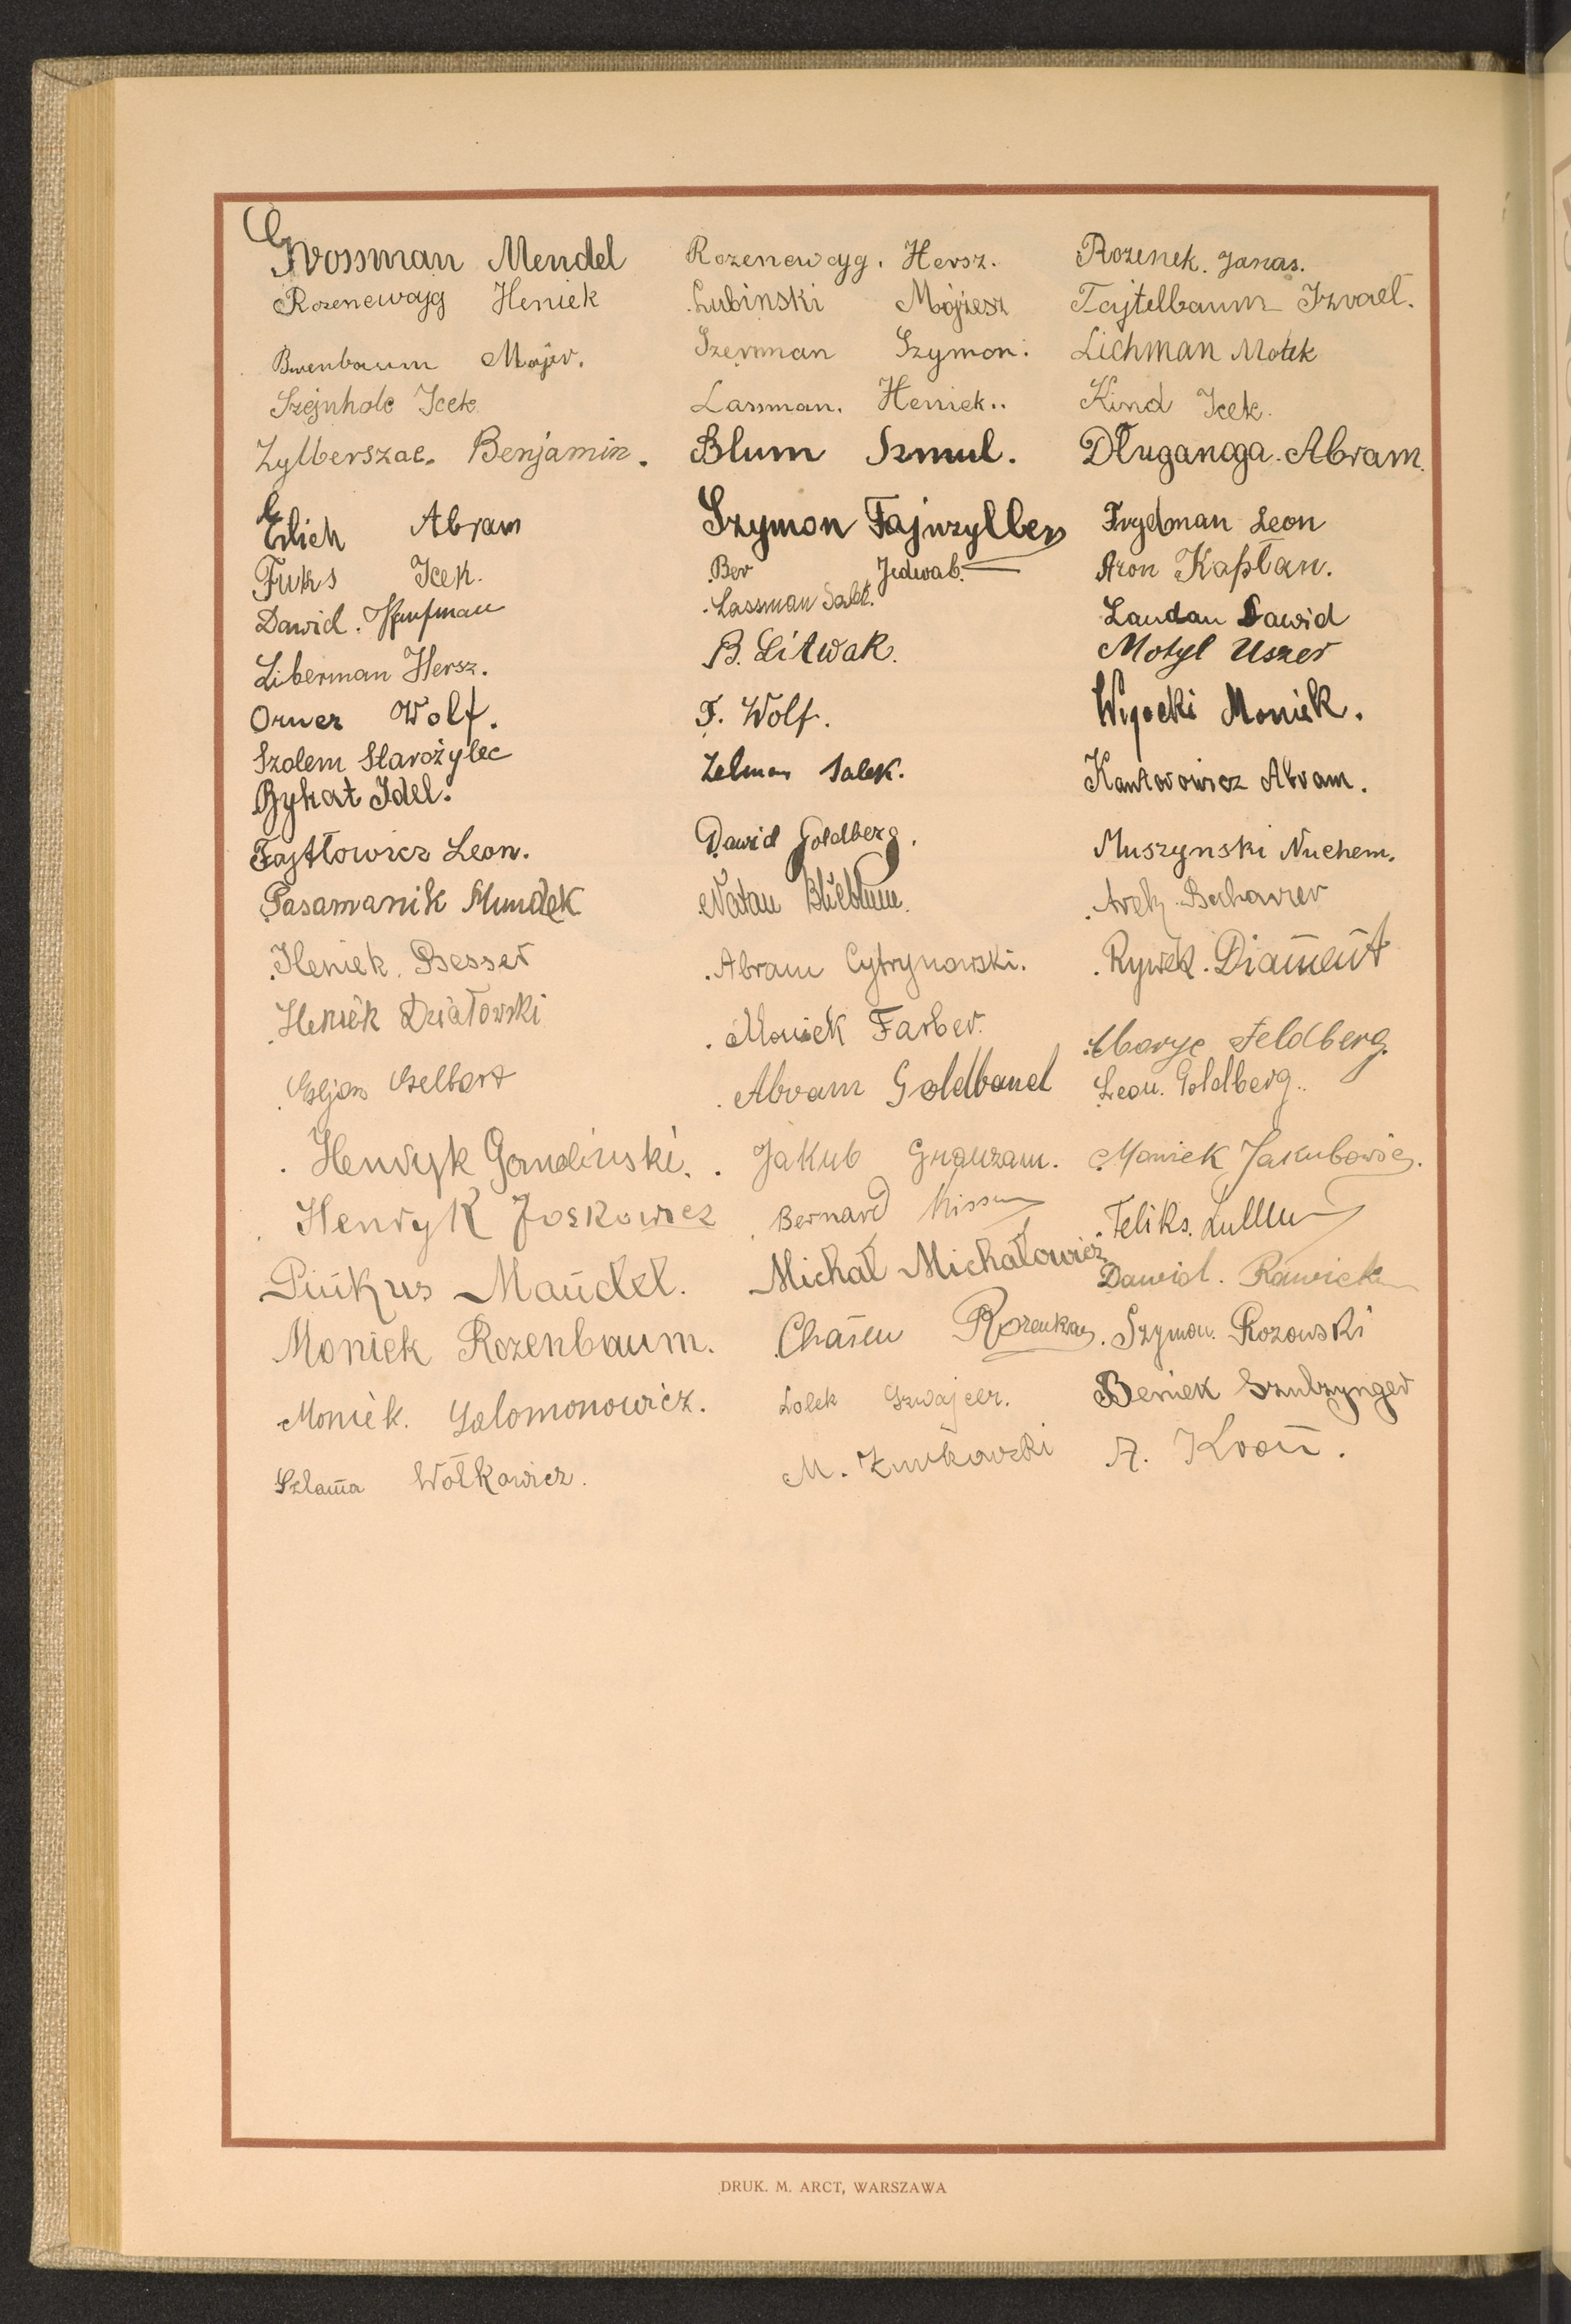 Grossman Mendel
Rozenewajg Heniek
Birenbaum Majer.
Szejnholc Icek.
Zylberszac. Benjamin.
Erlich Abram
Fuks Icek.
Dawid. Kaufman
Liberman Hersz.
Orner Wolf.
Szolem Starożylec
Bykat Idel.
Fajtłowicz Leon.
Pasamanik Mundek
Heniek. Besser
Heniek Działowski
Eljasz Gelbart
Henryk Gandinski.
Henryk Joskowicz
Pinkus Mandel.
Moniek Rozenbaum.
Moniek. Salomonowicz.
Szlama Wołkowicz.
Rozenewajg. Hersz.
Lubinski Mojżesz
Szerman Szymon.
Lassman. Heniek..
Blum Szmul.
Szymon Fajnzylber
Ber Jedwab.
Lassman Salek.
B. Litwak.
F. Wolf.
Zelman Salek.
Dawid Goldberg.
Natan
Abram Cytrynowski.
Moniek Farber.
Abram Goldband
Jakub Gnauzam.
Bernard
Michał Michałowicz
Rozenkranz.
Lolek Szwajcer.
M. Żurkowski
Rozenek. Janas.
Tajtelbaum Izrael.
Lichman Motek
Kind Icek.
Długanoga. Abram.
Frydman Leon
Aron Kapłan.
Landau Dawid
Motyl Uszer
Wysocki Moniek.
Kantorowicz Abram.
Muszynski Nuchem.
Arek. Bacharier
Rywek. Diament
Feldberg.
Leon. Goldberg..
Moniek Jakubowicz.
Feliks.
Dawid. Rawicki
Szymon. Rozowski
Beniek Szulzynger
A. Kron.
DRUK. M. ARCT, WARSZAWA